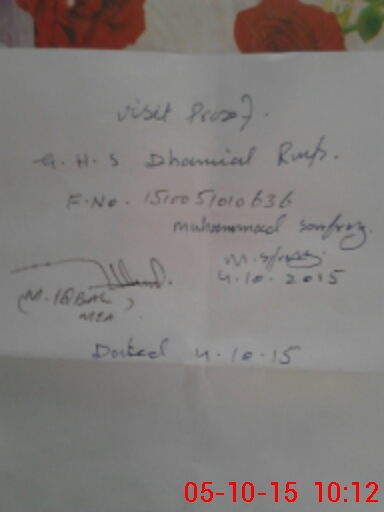 visit Proof.
G.H.S Dhamial Rwp.
F.No. 1510051010636
muhammad sarfraz.
4.10.2015
(M. IQBAL)
MEA
Dated 4.10.15
05-10-15 10:12